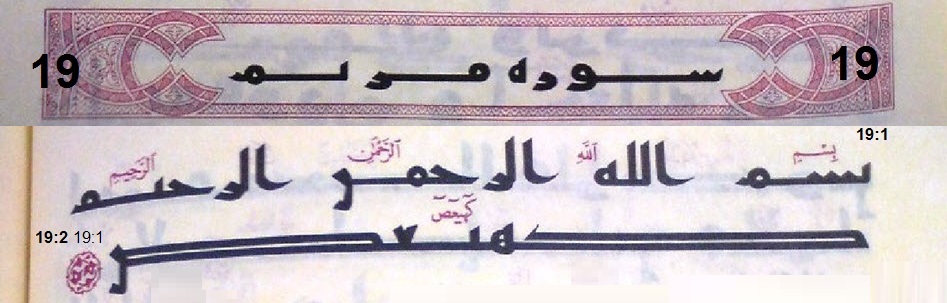 19 سوره مريم 19
19:1
بِسْمِ اللَّهِ الرَّحْمَٰنِ الرَّحِيمِ
بسم الله الرحمن الرحيم
كهيعص
كهيعص
19:2 19:1